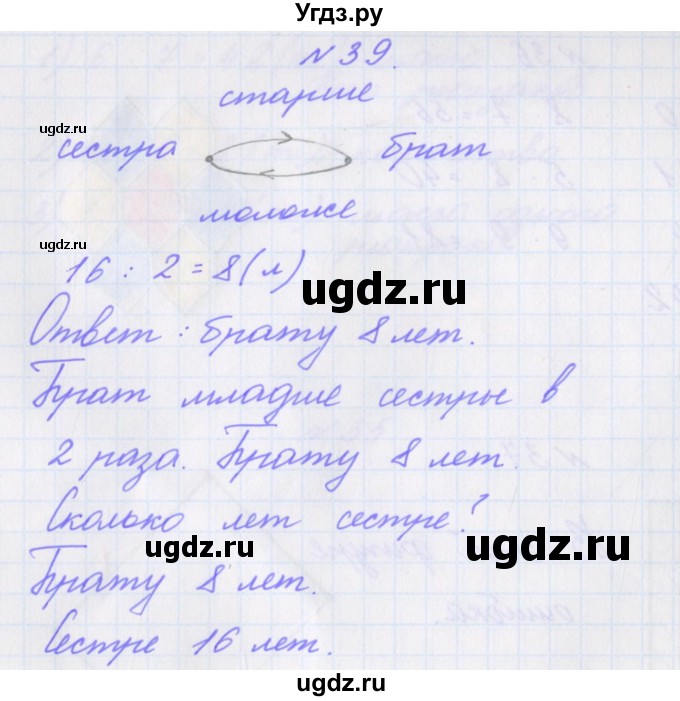 Угдз.ру
N 39.
старше
ugdz.ru
сестра брат
моложе
ugdz.ru
16 : 2 = 8 (л)
ugdz.ru
ugdz.ru
Ответ : брату 8 лет.
Брат младше сестры в
2 раза. Брату 8 лет.
Сколько лет сестре?
ugdz.ru
ugdz.ru
Брату 8 лет.
Сестре 16 лет.
ugdz.ru